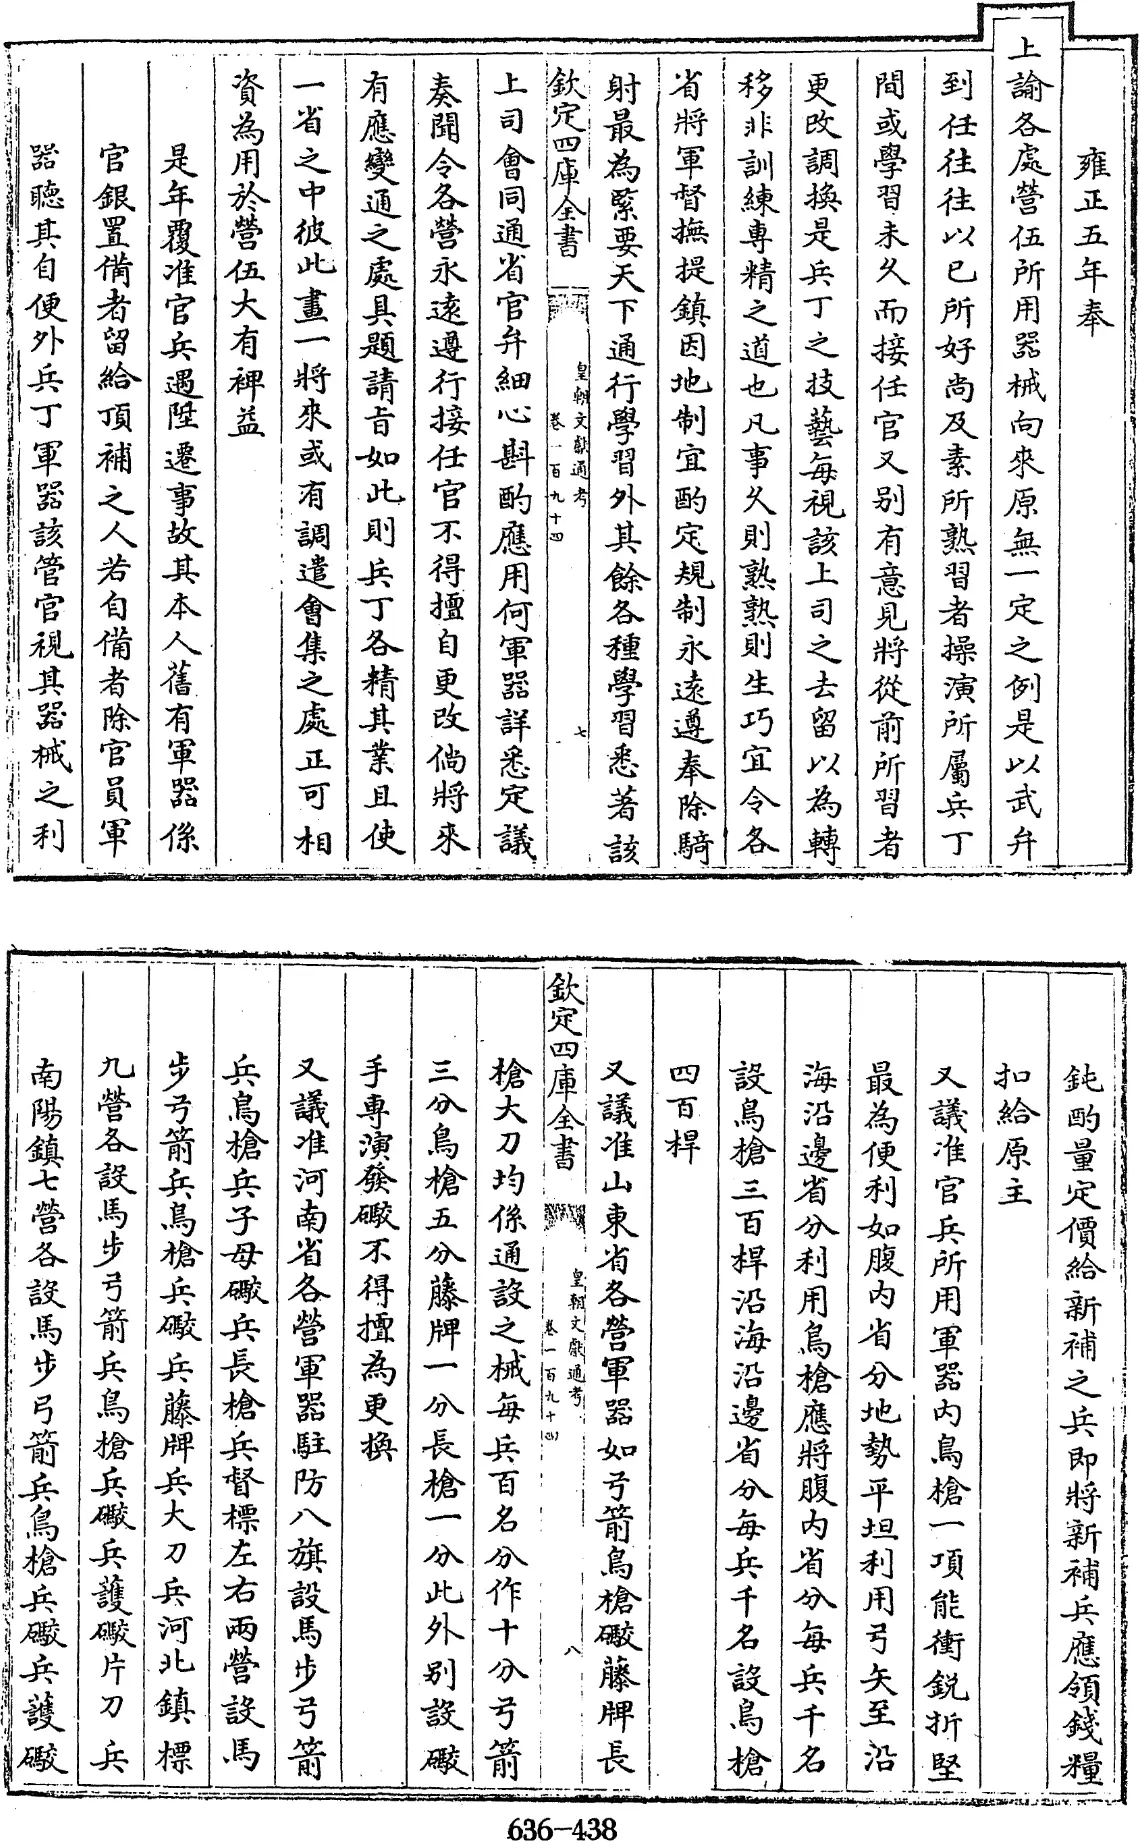 雍正五年奉
上諭各處營伍所用器械向來原無一定之例是以武弁
到任往往以已所好尚及素所熟習者操演所屬兵丁
間或學習未久而接任官又别有意見將從前所習者
更改調換是兵丁之技藝每視該上司之去留以為轉
移非訓練専精之道也凡事久則熟熟則生巧宜令各
省將軍督撫提鎮因地制宜酌定規制永逺遵奉除騎
射最為緊要天下通行學習外其餘各種學習悉著該
欽定四庫全書
皇朝文獻通考
卷一百九十四
七
上司會同通省官弁細心斟酌應用何軍器詳悉定議
奏聞令各營永逺遵行接任官不得擅自更改倘將來
有應變通之處具題請㫖如此則兵丁各精其業且使
一省之中彼此畫一將來或有調遣㑹集之處正可相
資為用於營伍大有裨益
是年覆准官兵遇陞遷事故其本人舊有軍器係
官銀置備者留給頂補之人若自備者除官員軍
器聽其自便外兵丁軍器該管官視其器械之利
鈍酌量定價給新補之兵即將新補兵應領錢糧
扣給原主
又議准官兵所用軍器内鳥槍一項能衝鋭折堅
最為便利如腹内省分地勢平坦利用弓矢至沿
海沿邊省分利用鳥槍應將腹内省分每兵千名
設鳥槍三百桿沿海沿邊省分每兵千名設鳥槍
四百桿
又議准山東省各營軍器如弓箭鳥槍礮藤牌長
欽定四庫全書
皇朝文獻通考
卷一百九十四
八
槍大刀均係通設之械每兵百名分作十分弓箭
三分鳥槍五分藤牌一分長槍一分此外别設礮
手專演發礮不得擅為更換
又議准河南省各營軍器駐防八旗設馬步弓箭
兵鳥槍兵子母礮兵長槍兵督標左右兩營設馬
步弓箭兵鳥槍兵礮兵藤牌兵大刀兵河北鎮標
九營各設馬步弓箭兵鳥槍兵礮兵護礮片刀兵
南陽鎮七營各設馬步弓箭兵鳥槍兵礮兵護礮
636-438